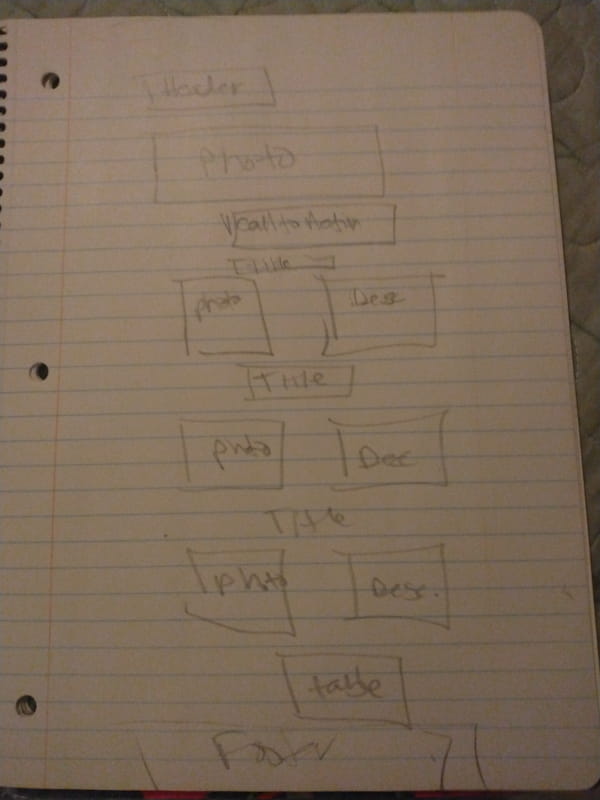 Header
photo
call to Action
Title
photo Desc
Title
photo Dec
Title
photo Desc.
table
Footer